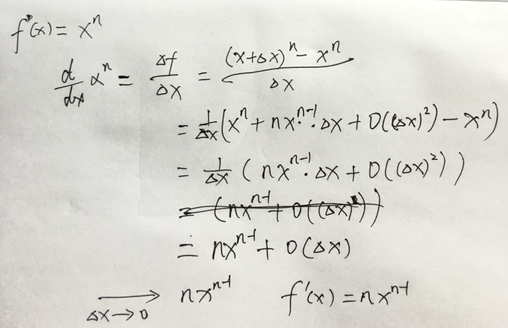 f'(x) = xⁿ
d/dx xⁿ = Δf/Δx = ((x+Δx)ⁿ - xⁿ)/Δx
= 1/Δx (xⁿ + nxⁿ⁻¹·Δx + O((Δx)²) - xⁿ)
= 1/Δx (nxⁿ⁻¹·Δx + O((Δx)²))
= (nxⁿ⁻¹ + O((Δx)²))
= nxⁿ⁻¹ + O(Δx)
⟶ Δx→0 nxⁿ⁻¹ f'(x) = nxⁿ⁻¹